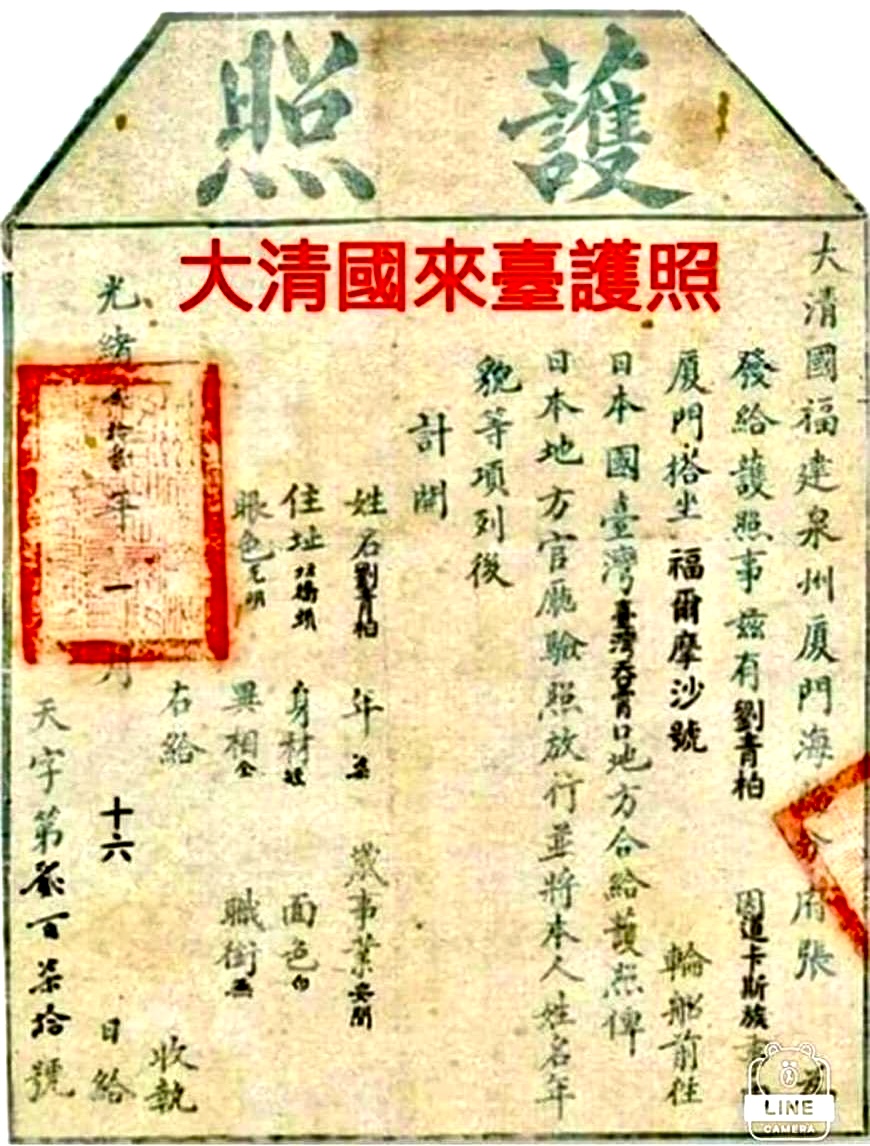 護照
大清國來臺護照
大清國福建泉州厦門海分府張
發給護照事兹有劉青柏 因道卡斯族事
厦門搭坐福爾摩沙號 輪船前往
日本國臺灣臺灣吞霄口地方合給護照俾
日本地方官廳驗照放行並將本人姓名年
貌等項列後
計開
姓名劉青柏 年 歲事業
住址 身材 面色白
眼色光明 異相全 職銜無
右給 收執
光緒贰拾贰年一月十六日給
天字第貳百柒拾號
LINE
CAMERA